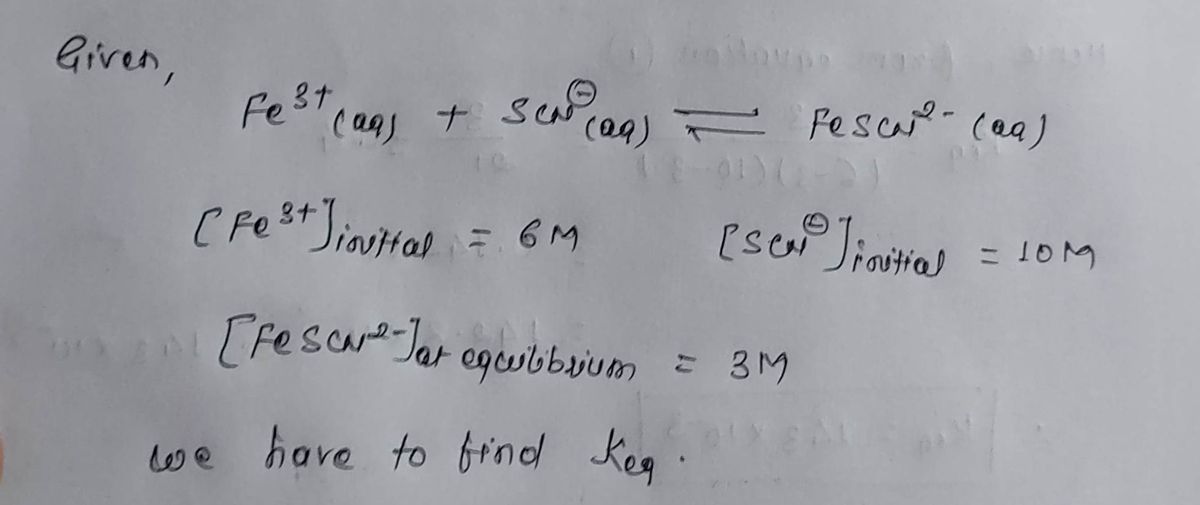 Given,
Fe³⁺(aq) + SCN⊖(aq) ⇌ FeSCN²⁻ (aq)
[Fe³⁺]initial = 6M [SCN⊖]initial = 10M
[FeSCN²⁻]at equilibrium = 3M
we have to find Keq.